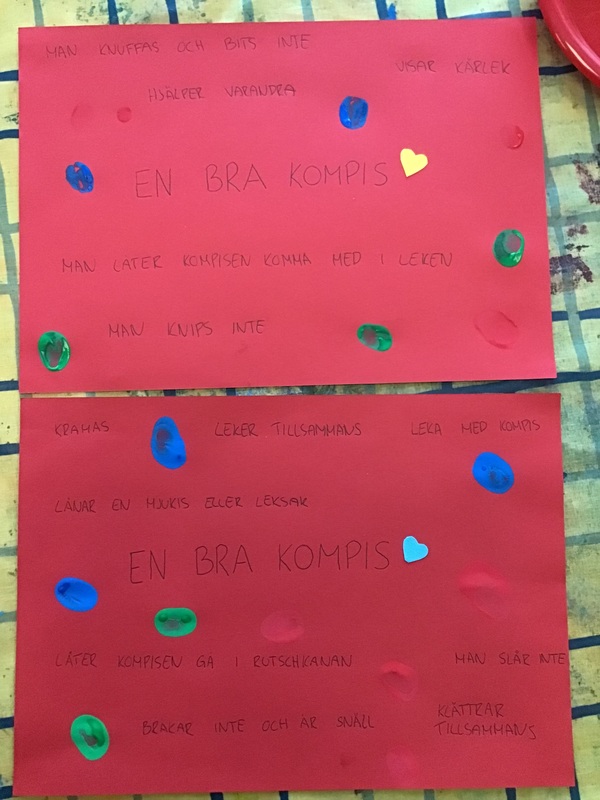 MAN KNUFFAS OCH BITS INTE
VISAR KÄRLEK
HJÄLPER VARANDRA
EN BRA KOMPIS
MAN LÅTER KOMPISEN KOMMA MED I LEKEN
MAN KNIPS INTE
KRAMAS
LEKER TILLSAMMANS
LEKA MED KOMPIS
LÅNAR EN MJUKIS ELLER LEKSAK
EN BRA KOMPIS
LÅTER KOMPISEN GÅ I RUTSCHKANAN
MAN SLÅR INTE
BRÅKAR INTE OCH ÄR SNÄLL
KLÄTTRAR
TILLSAMMANS